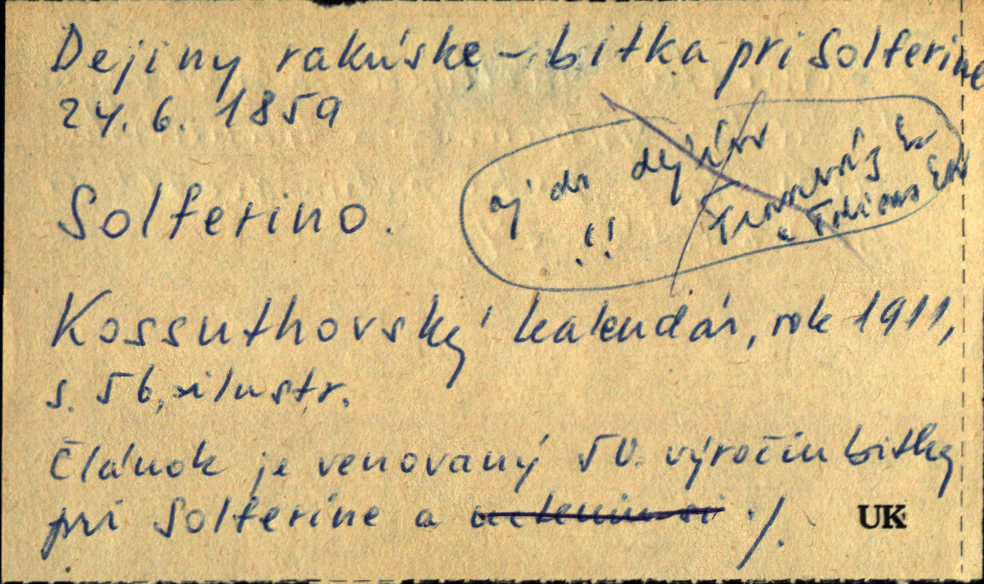 Dejiny rakúske - bitka pri Solferine
24. 6. 1859
aj do dejín
!!
Solferino.
Kossuthovský kalendár, rok 1911,
s. 56, ilustr.
Článok je venovaný 50. výročiu bitky
pri Solferine a ./.
UK